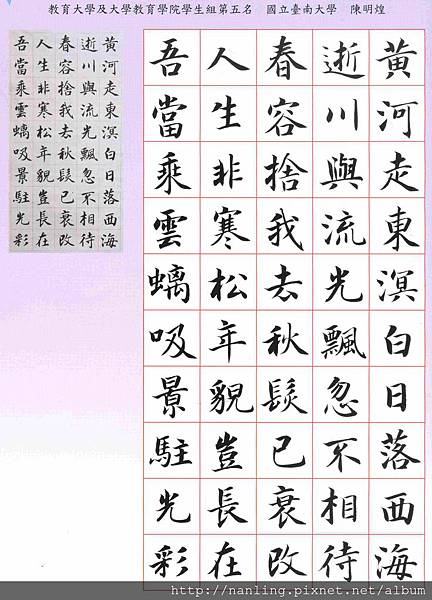 教育大學及大學教育學院學生組第五名　國立臺南大學　陳明煌
黃河走東溟白日落西海
逝川與流光飄忽不相待
春容捨我去秋髮已衰改
人生非寒松年貌豈長在
吾當乘雲螭吸景駐光彩
黃河走東溟白日落西海
逝川與流光飄忽不相待
春容捨我去秋髮已衰改
人生非寒松年貌豈長在
吾當乘雲螭吸景駐光彩
http://nanling.pixnet.net/album